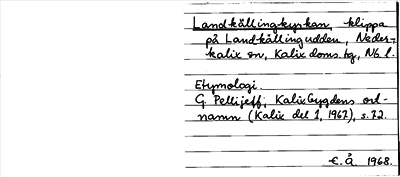 Landkällingkyrkan, klippa
på Landkällingudden, Neder-
kalix sn, Kalix doms.tg, Nb. l.
Etymologi.
G. Pellijeff, Kalixbygdens ort-
namn (Kalix del 1, 1967), s. 72.
E. Å. 1968.